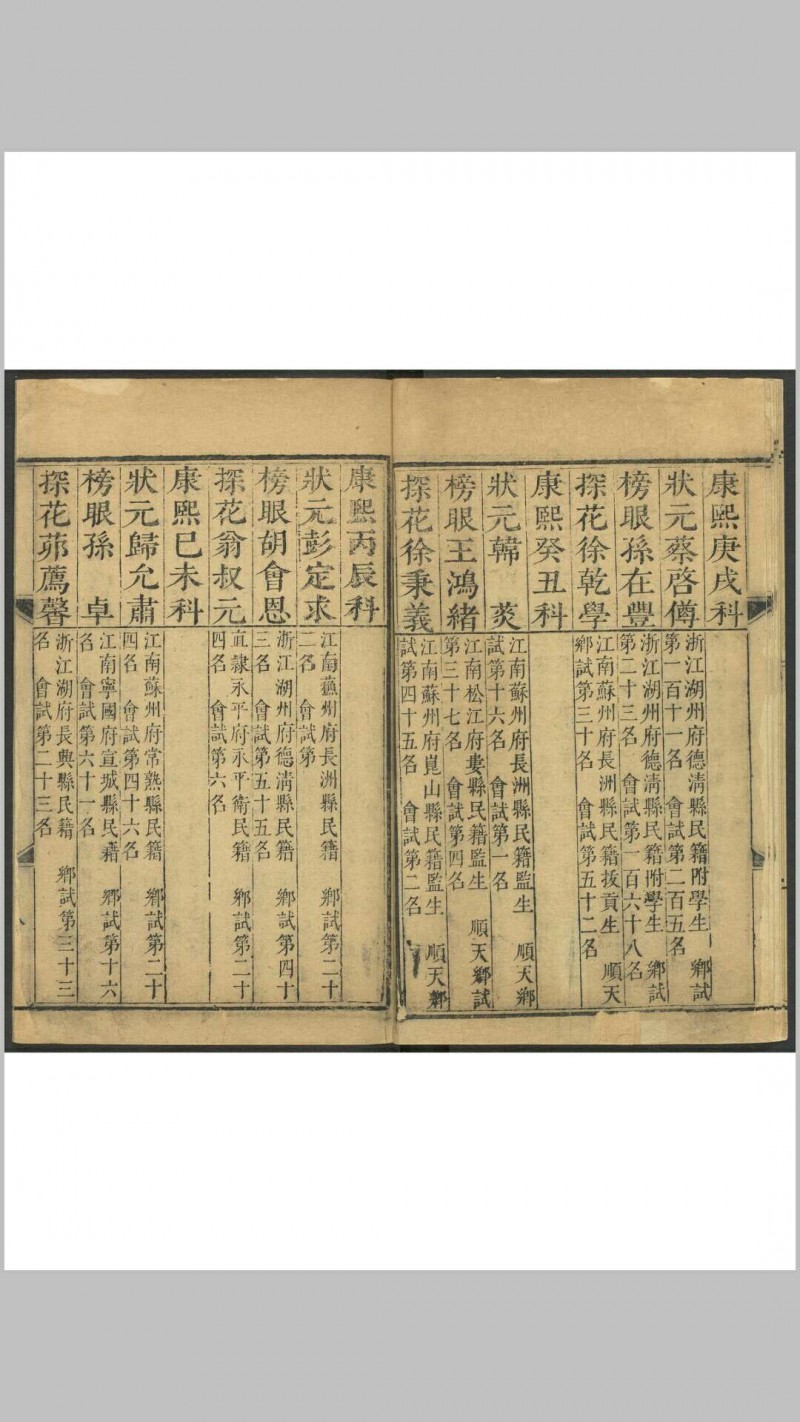 康熙庚戌科
狀元蔡啓僔
浙江湖州府德淸縣民籍附學生 鄉試
第一百十一名 會試第二百五名
榜眼孫在豐
浙江湖州府德淸縣民籍附學生 鄉試
第二十三名 會試第一百六十八名
探花徐乾學
江南蘇州府長洲縣民籍拔貢生 順天
鄉試第三十名 會試第五十二名
康熙癸丑科
狀元韓菼
江南蘇州府長洲縣民籍監生 順天鄉
試第十六名 會試第一名
榜眼王鴻緒
江南松江府婁縣民籍監生 順天鄉試
第三十七名 會試第四名
探花徐秉義
江南蘇州府崑山縣民籍監生 順天鄉
試第四十五名 會試第二名
康熙丙辰科
狀元彭定求
江南蘇州府長洲縣民籍 鄉試第二十
二名 會試第
榜眼胡會恩
浙江湖州府德淸縣民籍 鄉試第四十
三名 會試第五十五名
探花翁叔元
直隸永平府永平衛民籍 鄉試第二十
四名 會試第六名
康熙己未科
狀元歸允肅
江南蘇州府常熟縣民籍 鄉試第二十
四名 會試第四十六名
榜眼孫卓
江南寧國府宣城縣民籍 鄉試第十六
名 會試第六十一名
探花茆薦馨
浙江湖府長興縣民籍 鄉試第三十三
名 會試第二十三名